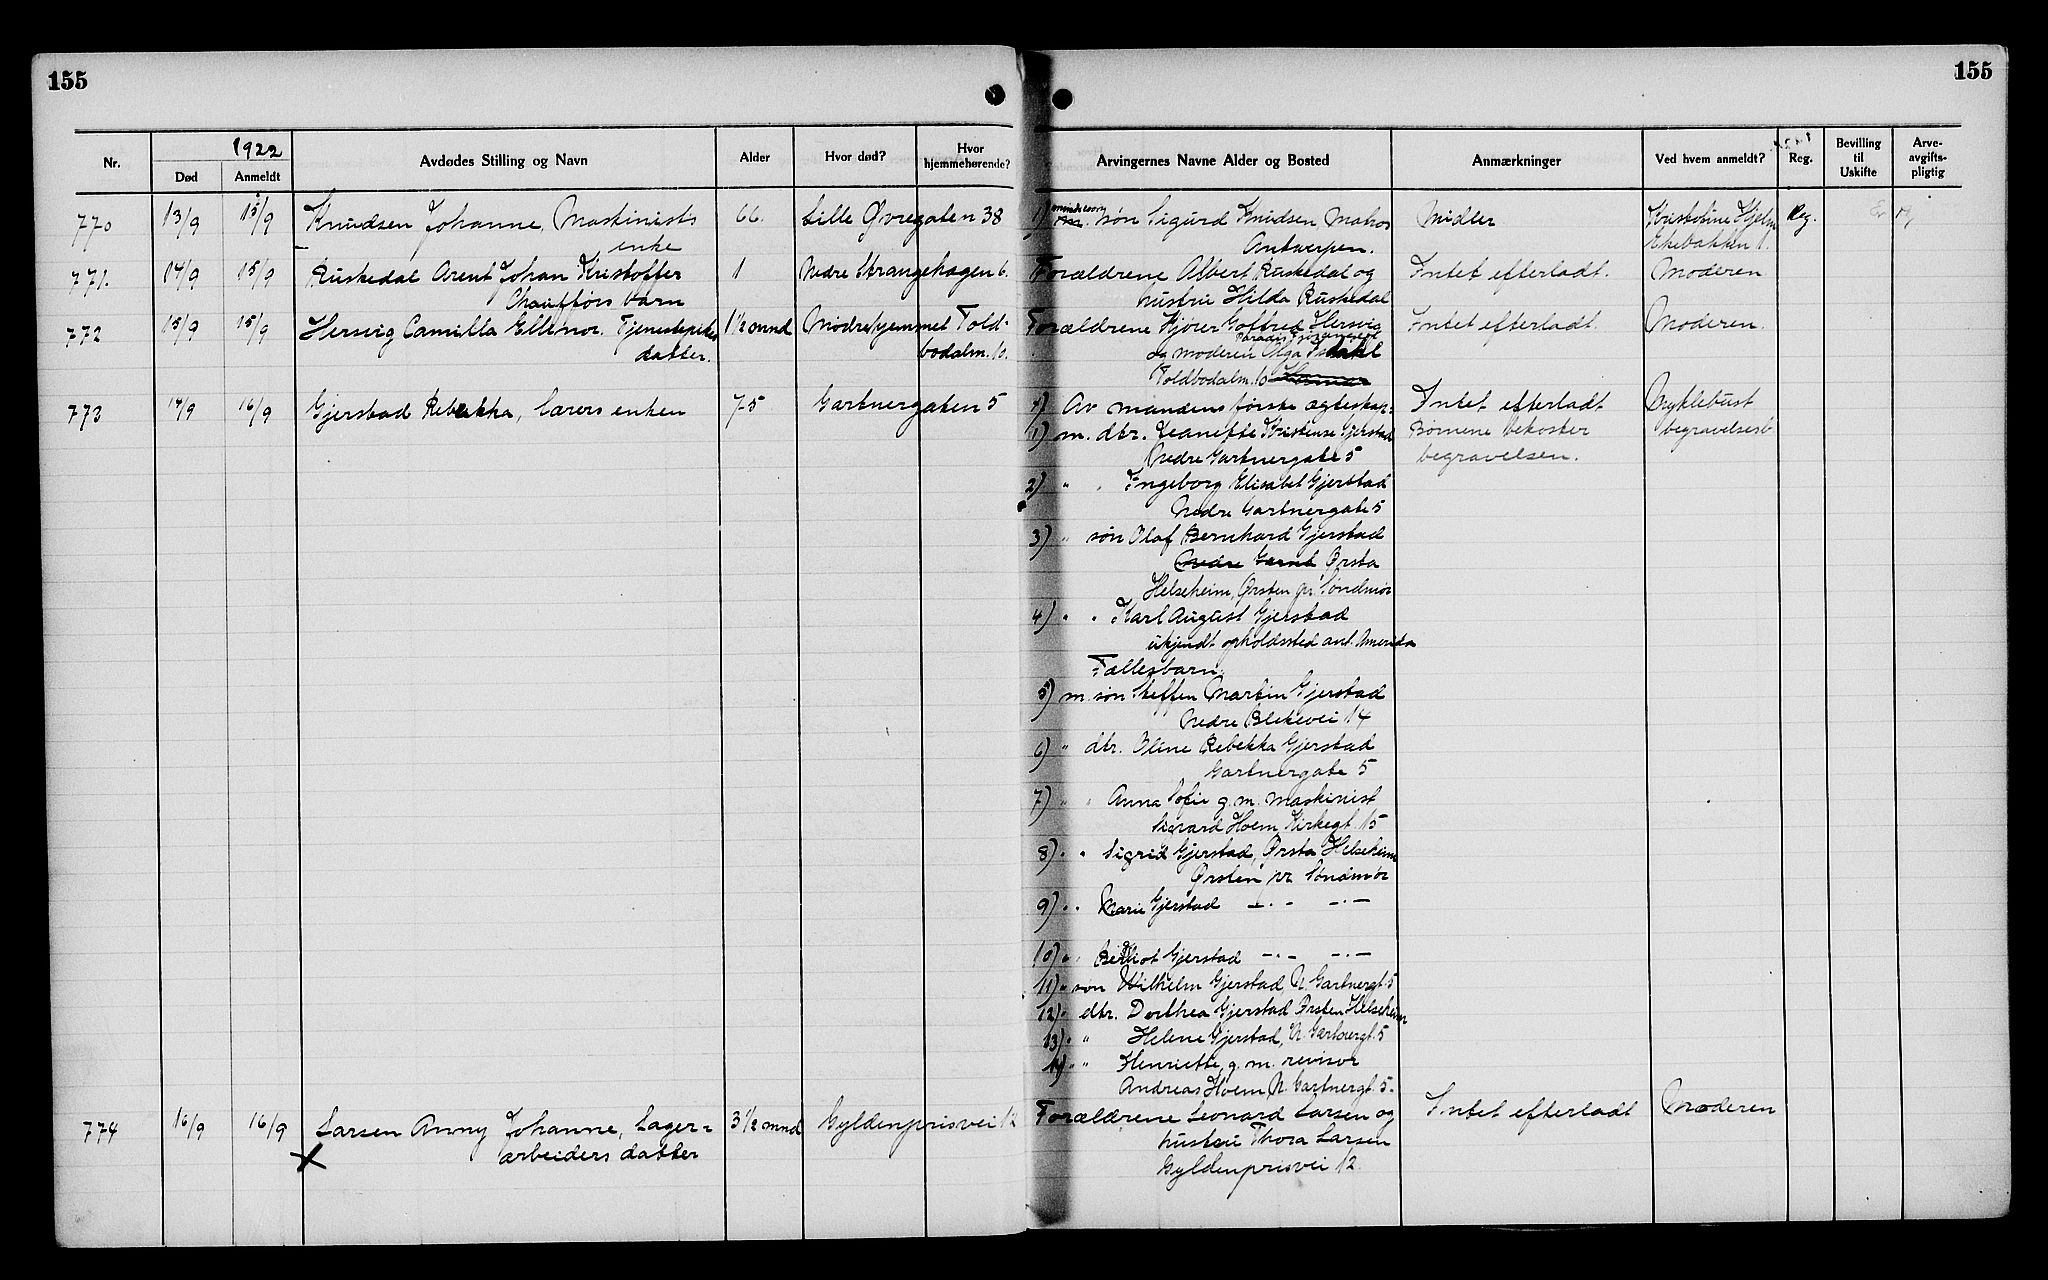 155
155
Nr.
1922
Død
Anmeldt
Avdødes Stilling og Navn
Alder
Hvor død?
Hvor
hjemmehørende?
Arvingernes Navne Alder og Bosted
Anmærkninger
Ved hvem anmeldt?
Reg.
Bevilling
til
Uskifte
Arve-
avgifts-
pligtig
770 13/9 15/9 Knudsen Johanne, Maskinists 66. Lille Øvregaten 38 1) søn Sigurd Knudsen Matros Midler Kristofine Hjelm Reg.
enke Antwerpen. Ekebakken 1.
771. 14/9 15/9 Ruskedal Arent Johan Kristoffer 1 Nedre Strangehagen 6. Forældrene Albert Ruskedal og Intet efterladt. Moderen
Chaufførs barn hustru Hilda Ruskedal
772 15/9 15/9 Hersvig Camilla Ellinor. Tjenestepikes 1½ mnd Mødrehjemmet Told- Forældrene Hjører Gotfred Hersvig Intet efterladt. Moderen.
datter. bodalm. 10. og moderen Olga
Toldbodalm. 10
773 14/9 16/9 Gjerstad Rebekka, lærers enken 75 Gartnergaten 5 Av mandens første ægteskap: Intet efterladt Myklebust
1) m. dtr. Jeanette Kristense Gjerstad Børnene bekoster begravelsesb.
Nedre Gartnergate 5 begravelsen.
2) " " Ingeborg Elisabet Gjerstad
Nedre Gartnergate 5
3) " søn Olaf Bernhard Gjerstad
Nedre Gartnt Ørsta
Helseheim, Ørsten pr. Søndmør
4) " " Karl August Gjerstad
ukjendt opholdssted ant. Amerika
Fællesbarn.
5) m. søn Steffen Martin Gjerstad
Nedre Blekevei 14
6) " dtr. Oline Rebekka Gjerstad
Gartnergate 5
7) " " Anna Sofie g. m. maskinist
Sigvard Hoem Kirkegt. 15
8) " " Sigrid Gjerstad, Ørsta Helseheim
Ørsten pr Søndmør
9) " " Marie Gjerstad — " — — " —
10) " " Gjerstad — " — — " —
11) " søn Wilhelm Gjerstad, N. Gartnergt. 5
12) " dtr. Dorthea Gjerstad Ørsten Helseheim
13) " " Helene Gjerstad, N. Gartnergt. 5
14) " " Henriette g. m. revisor
Andreas Hoem N. Gartnergt. 5.
774 16/9 16/9 Larsen Anny Johanne, Lager= 3½ mnd Gyldenprisvei 12 Forældrene Leonard Larsen og Intet efterladt Moderen
arbeiders datter hustru Thora Larsen
Gyldenprisvei 12.